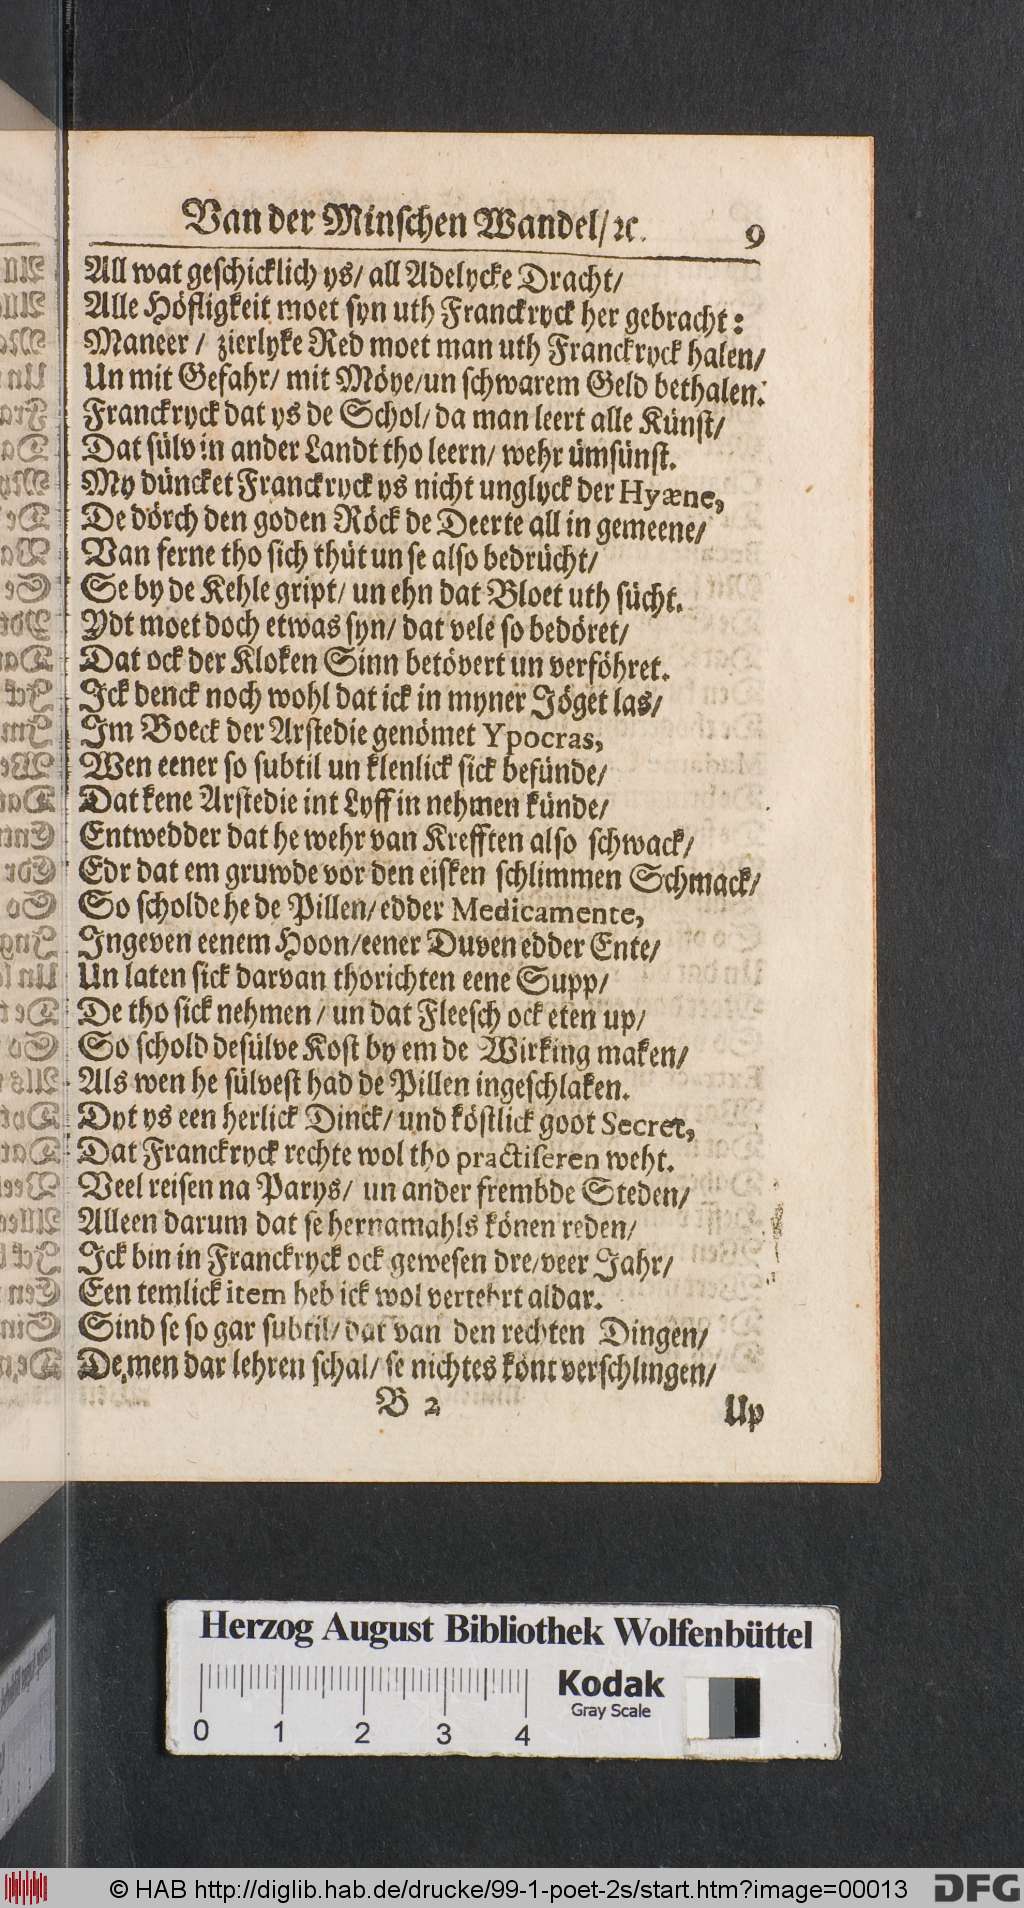 Van der Minschen Wandel/ ꝛc. 9
All wat geschicklich ys/ all Adelycke Dracht/
Alle Höfligkeit moet syn uth Franckryck her gebracht:
Maneer / zierlyke Red moet man uth Franckryck halen/
Un mit Gefahr/ mit Möye/ un schwarem Geld bethalen.
Franckryck dat ys de Schol/ da man leert alle Künst/
Dat sülv in ander Landt tho leern/ wehr ümsünst.
My düncket Franckryck ys nicht unglyck der Hyæne,
De dörch den goden Röck de Deerte all in gemeene/
Van ferne tho sich thüt un se also bedrücht/
Se by de Kehle gript/ un ehn dat Bloet uth sücht.
Ydt moet doch etwas syn/ dat vele so bedöret/
Dat ock der Kloken Sinn betövert un verföhret.
Ick denck noch wohl dat ick in myner Jöget las/
Im Boeck der Arstedie genömet Ypocras,
Wen eener so subtil un klenlick sick befünde/
Dat kene Arstedie int Lyff in nehmen künde/
Entwedder dat he wehr van Krefften also schwack/
Edr dat em gruwde vor den eisken schlimmen Schmack/
So scholde he de Pillen/ edder Medicamente,
Ingeven eenem Hoon/ eener Duven edder Ente/
Un laten sick darvan thorichten eene Supp/
De tho sick nehmen / un dat Fleesch ock eten up/
So schold desülve Kost by em de Wirking maken/
Als wen he sülvest had de Pillen ingeschlaken.
Dyt ys een herlick Dinck/ und köstlick goot Secret,
Dat Franckryck rechte wol tho practiseren weht.
Veel reisen na Parys/ un ander frembde Steden/
Alleen darum dat se hernamahls könen reden/
Ick bin in Franckryck ock gewesen dre/ veer Jahr/
Een temlick item heb ick wol vertehrt aldar.
Sind se so gar subtil/ dat van den rechten Dingen/
De men dar lehren schal/ se nichtes könt verschlingen/
B 2 Up
Herzog August Bibliothek Wolfenbüttel
Kodak
Gray Scale
0 1 2 3 4
© HAB http://diglib.hab.de/drucke/99-1-poet-2s/start.htm?image=00013 DFG